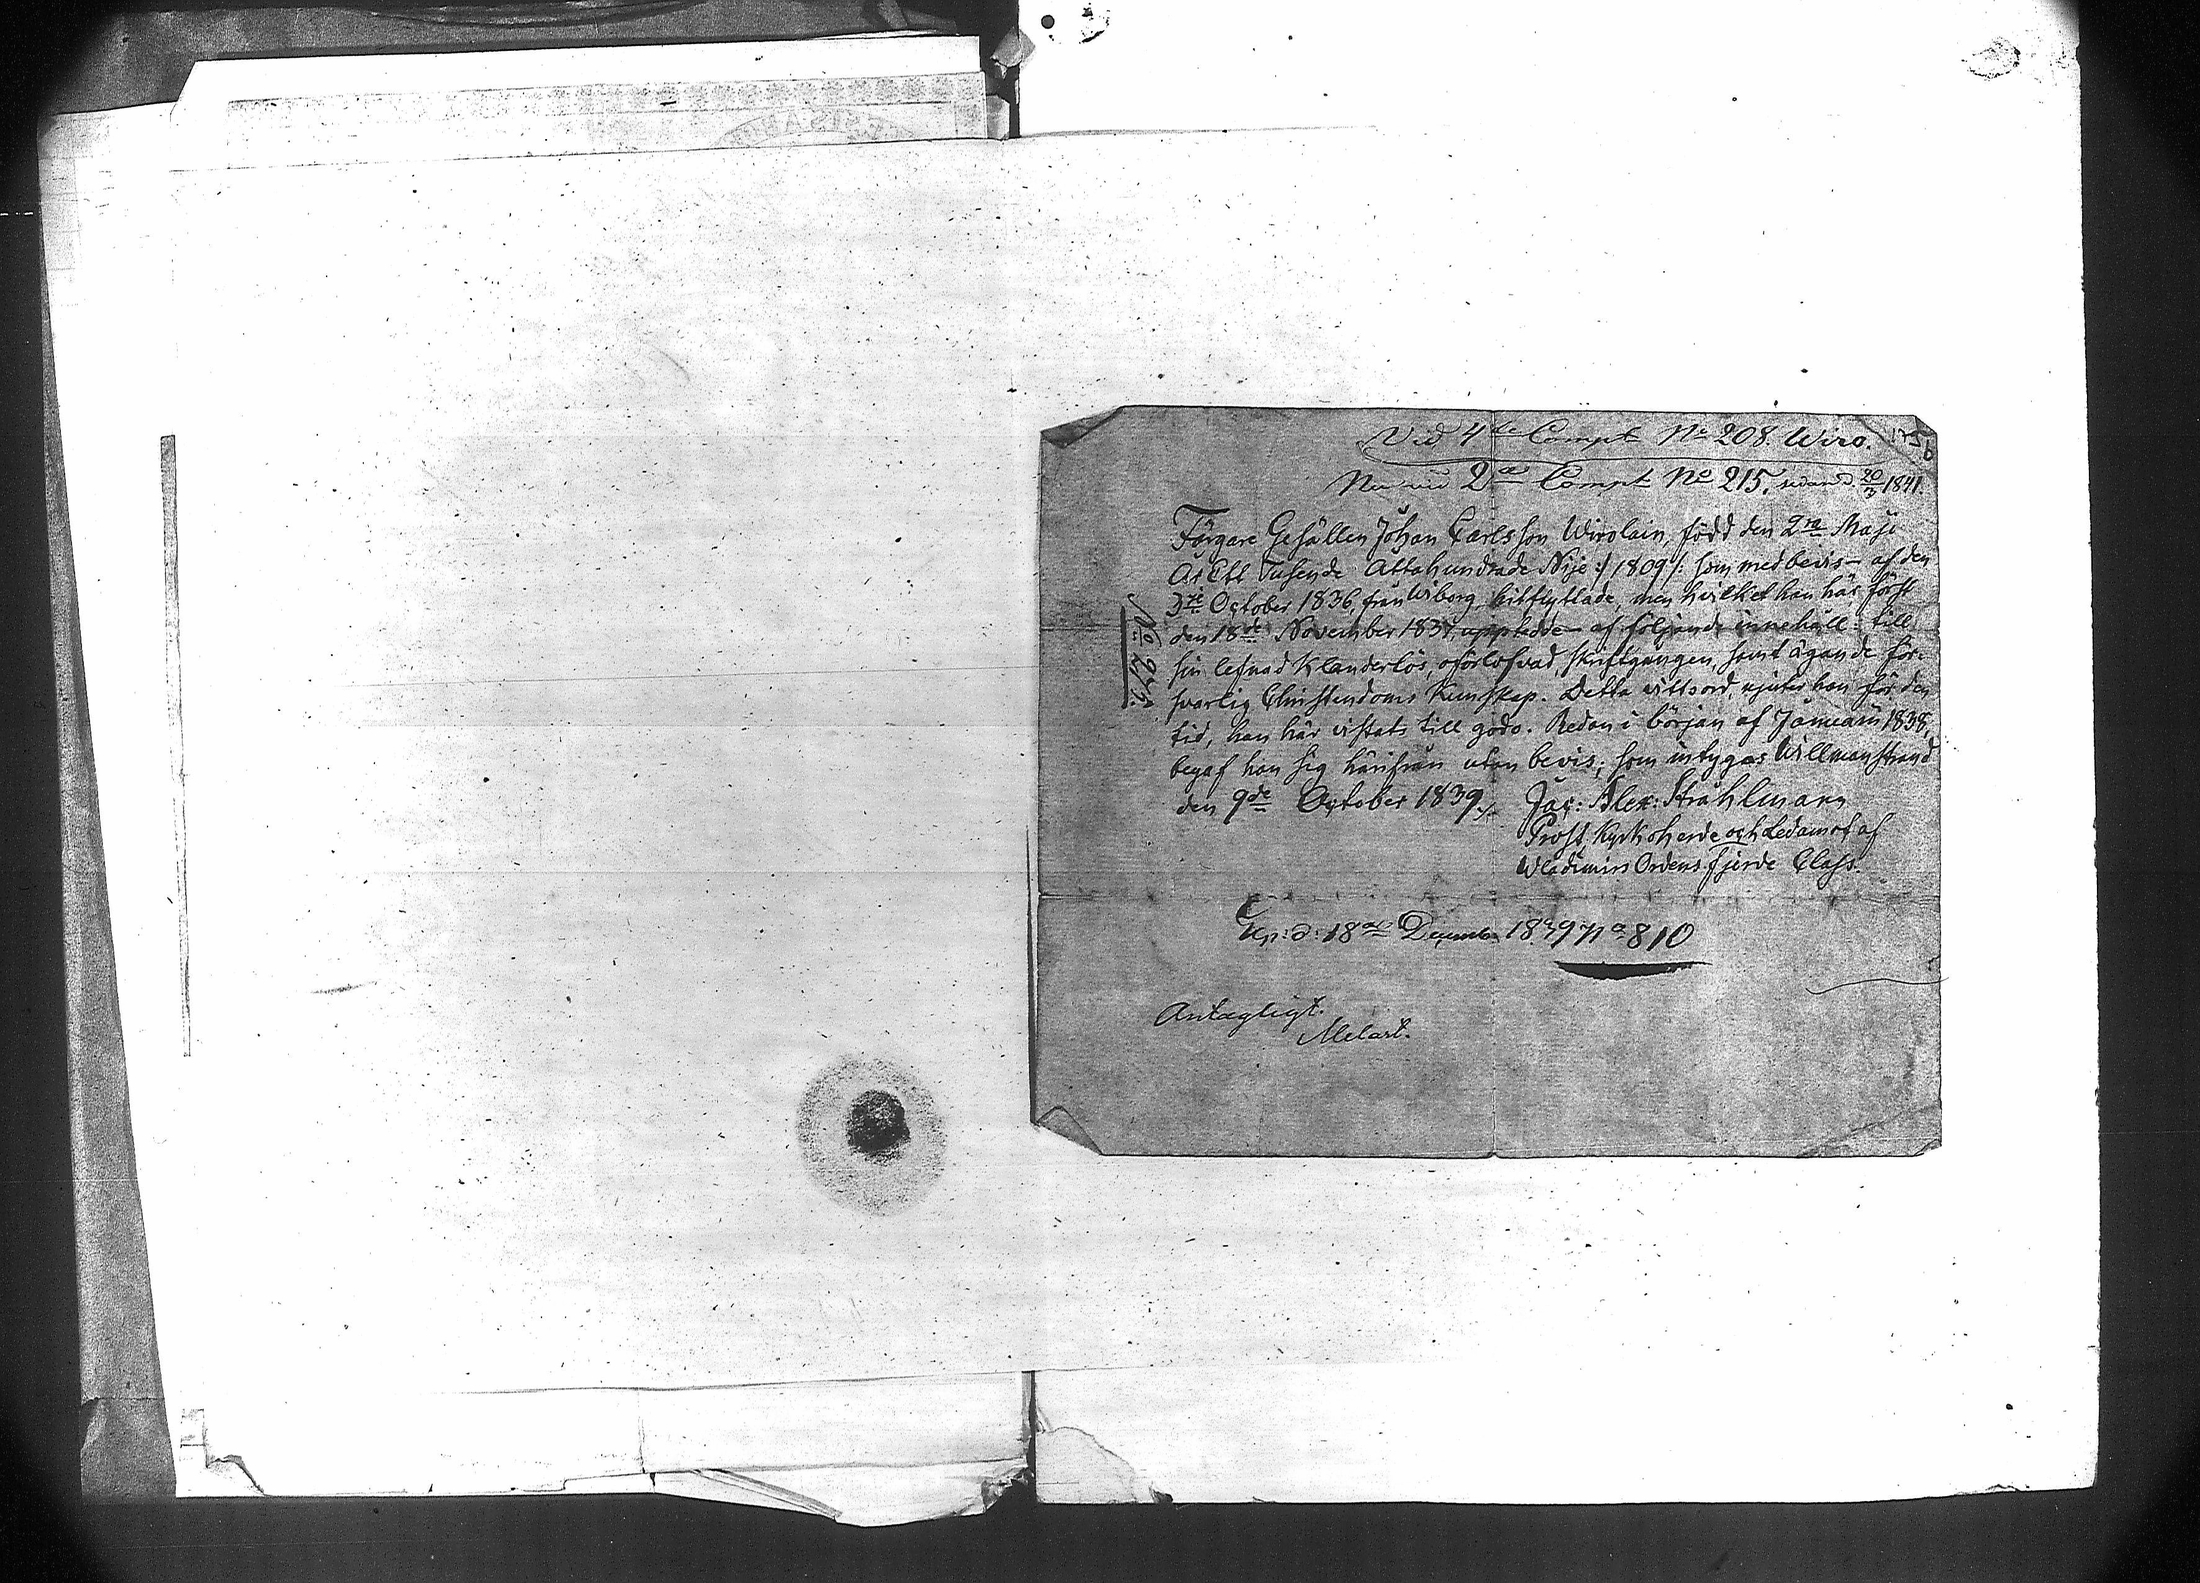 Vid 4de Compt No 208. Wiro.
Nu vid 2a Compt No 215. sedan d. 20/3 1841.
Färgare Gesällen Johan Carlsson Wirolain, född den 2ra Maji
År Ett Tusende Åttahundrade Nije :/ 1809 /: som med bevis af den
3je October 1836, från Wiborg hitflyttade, men hvilket han här först
den 18de November 1837, upptedde af följande innehåll: till
sin lefnad klanderlös, oförlofvad, skriftgången, samt ägande för-
svarlig Christendoms Kunskap. Detta vittsord njuter han för den
tid, han här vistats till godo. Redan i början af Januarii 1838,
begaf han sig härifrån utan bevis; som intygas Willmanstrand
den 9de October 1839.
Jac: Alex: Strahlmann
Prost, Kyrkoherde och Ledamot af
Wladimirs Ordens fjerde Class.
No 275.
d: 18de December 1839 No 810
Antagligt.
Melart.